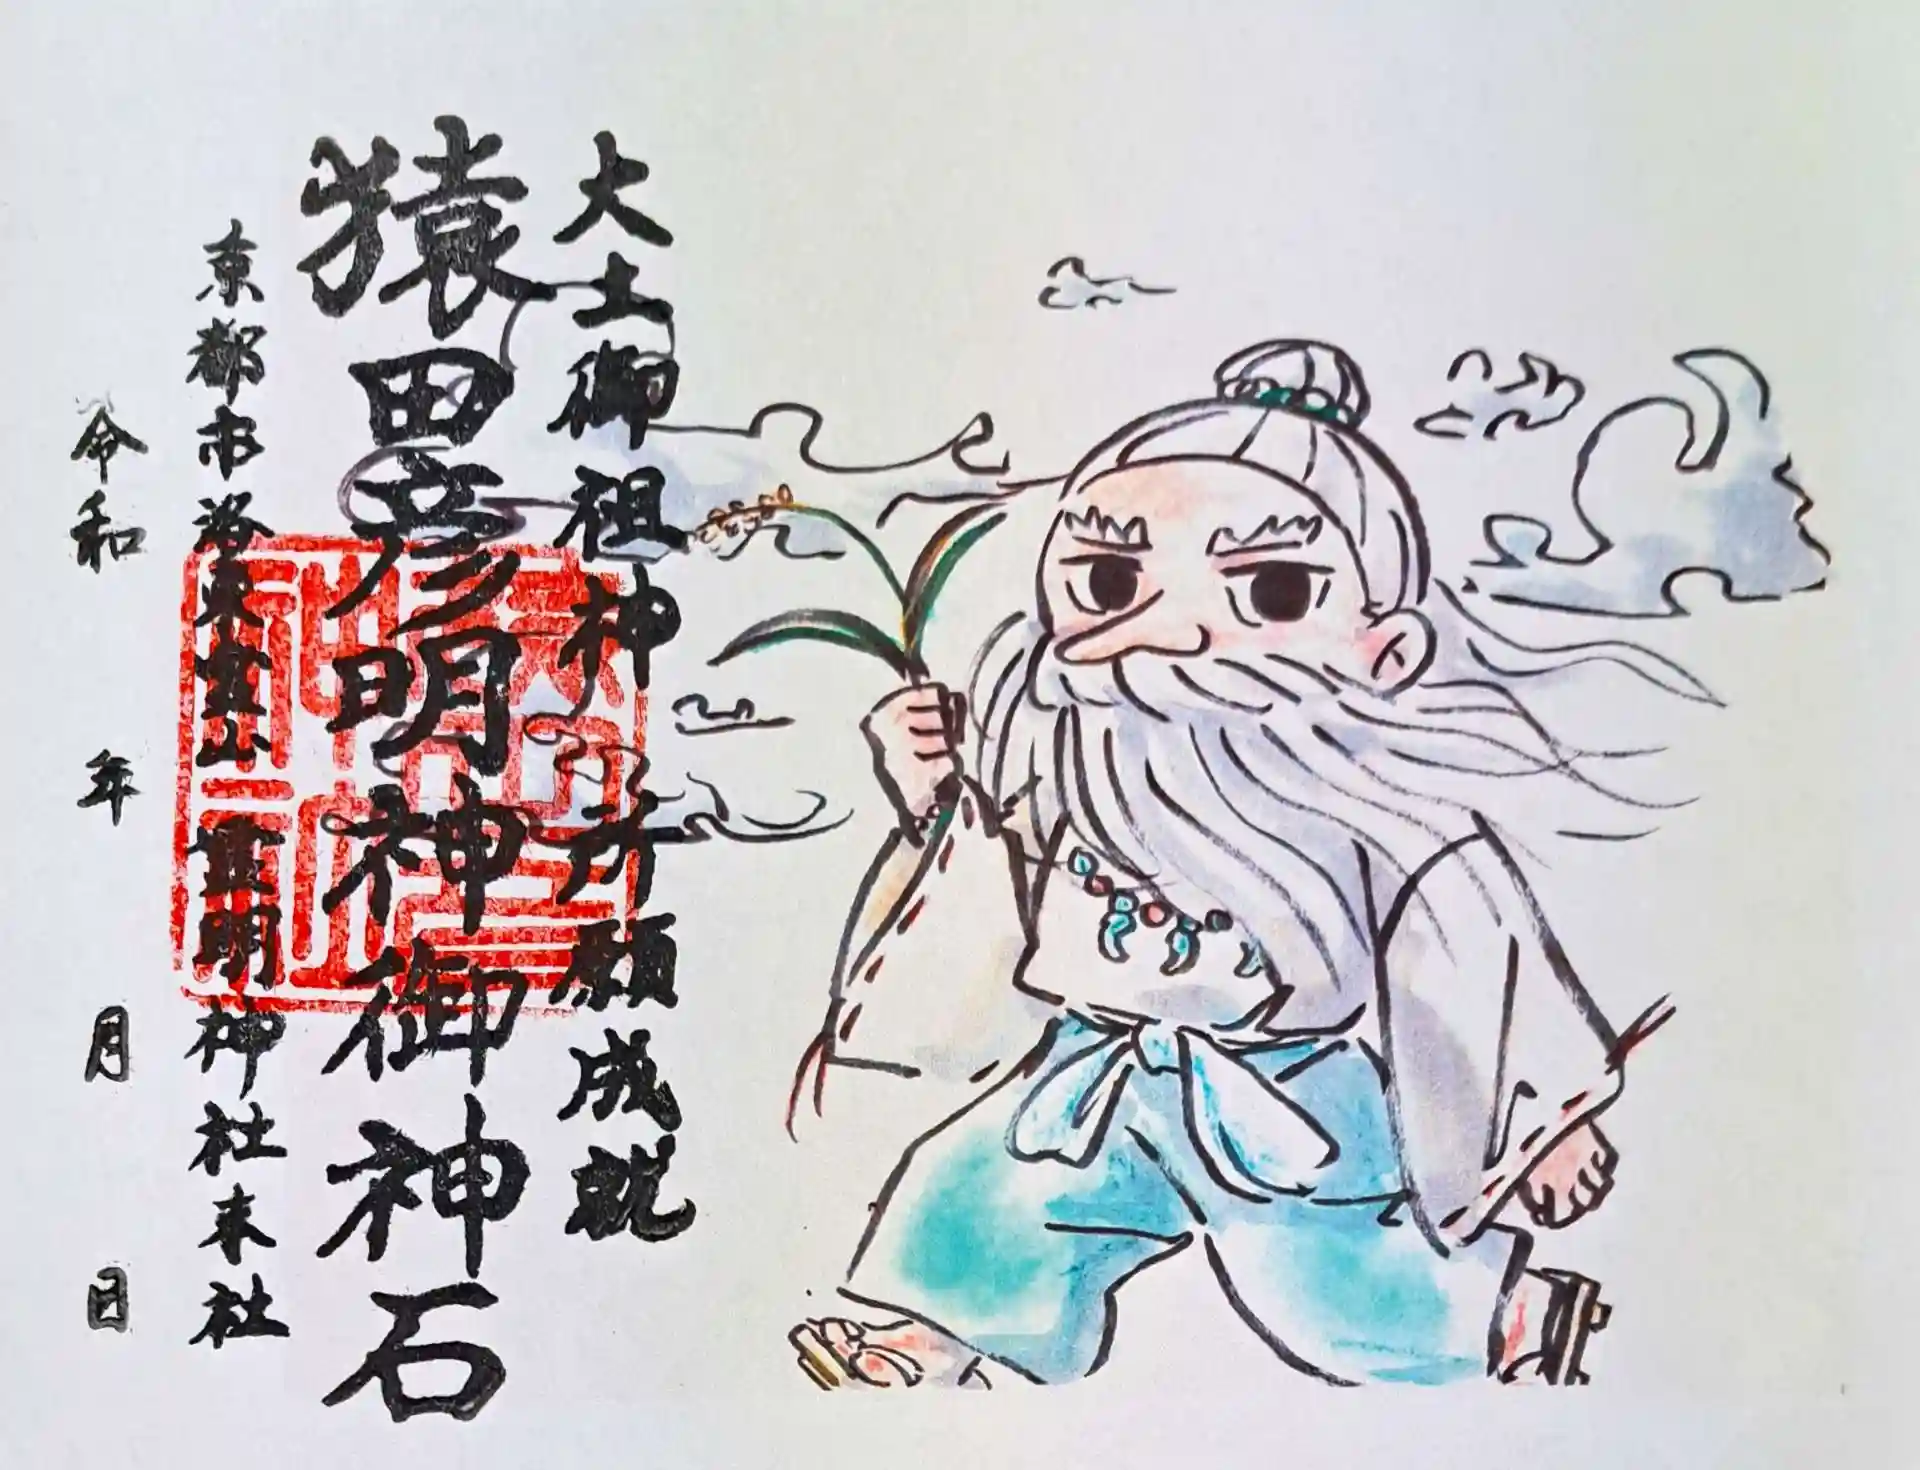 大土御祖神 所願成就
猿田彦明神御神石
京都市洛東霊山 霊明神社末社
令和 年 月 日